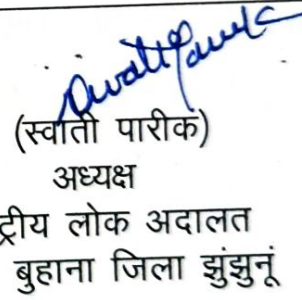 (स्वाती पारीक)
अध्यक्ष
ट्रीय लोक अदालत
बुहाना जिला झुंझुनूं